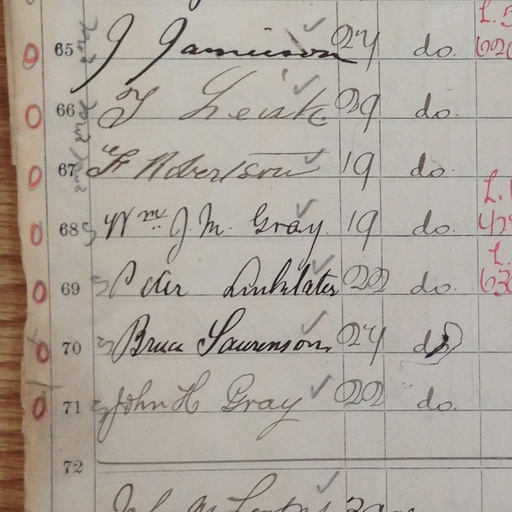 65 J Jamieson 24 do.
66 T Leask 29 do.
67 F Robertson 19 do.
68 Wm. J. M. Gray 19 do.
69 Peter Linklater 22 do.
70 Bruce Laurenson 24 do
71 John H Gray 22 do.
72